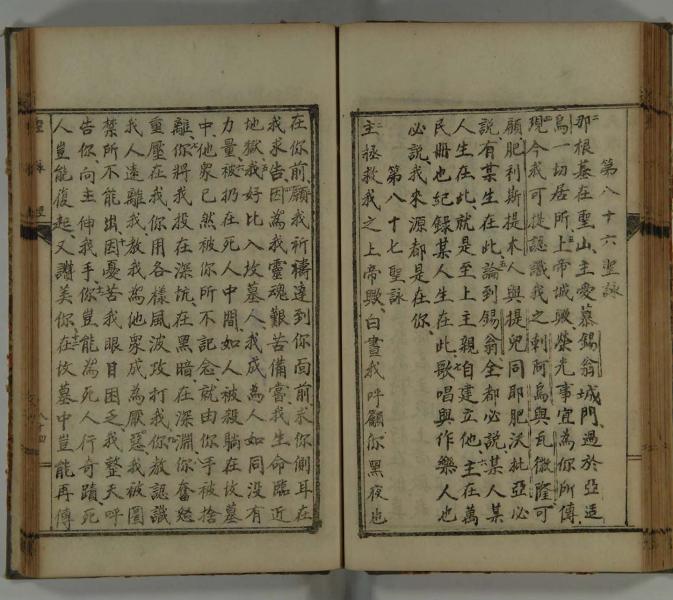 第八十六聖詠
那根基在聖山主愛慕錫翁城門過於亞适
烏一切居所上帝城歟榮光事宜為你所傳
現今我可提認識我之剌阿烏與瓦微隆可
顧肥利斯提木人與提兒同耶肥沃批亞必
說有某生在此論到錫翁全都必說某人某
人生在此就是至上主親自建立他主在萬
民冊也紀錄某人生在此歌唱與作樂人也
必說我來源都是在你
第八十七聖詠
主拯救我之上帝歟白晝我呼籲你黑夜也
在你前願我祈禱達到你面前求你側耳在
我求告因為我靈魂艱苦備嘗我生命臨近
地獄我好比入坟墓人我成為人如同沒有
力量被扔在死人中間如人被殺躺在坟墓
中他眾已然被你所不記念就由你手被捨
離你將我投在深坑在黑暗在深淵你奮怒
重壓在我你用各樣風波攻打我你教認識
我人遠離我教我為他眾成為厭惡我被圈
禁所不能出因憂苦我眼目困乏我整天呼
告你向主伸我手你豈能為死人行奇蹟死
人豈能復起又讚美你在坟墓中豈能再傳
聖詠經